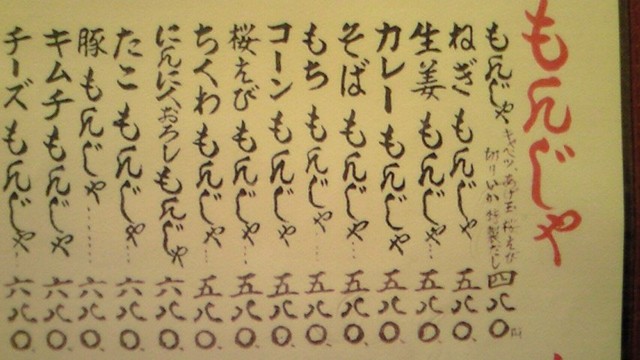 もんじゃ
もんじゃ キャベツ、あげ玉 桜えび 切りいか 特製だし 四八〇円
ねぎもんじゃ……五八〇、
生姜もんじゃ……五八〇、
カレーもんじゃ 五八〇、
そばもんじゃ……五八〇、
もちもんじゃ……五八〇、
コーンもんじゃ 五八〇、
桜えびもんじゃ…五八〇、
ちくわもんじゃ…五八〇、
にんにくおろしもんじゃ 六八〇、
たこもんじゃ……六八〇、
豚もんじゃ……六八〇、
キムチもんじゃ 六八〇、
チーズもんじゃ…六八〇、